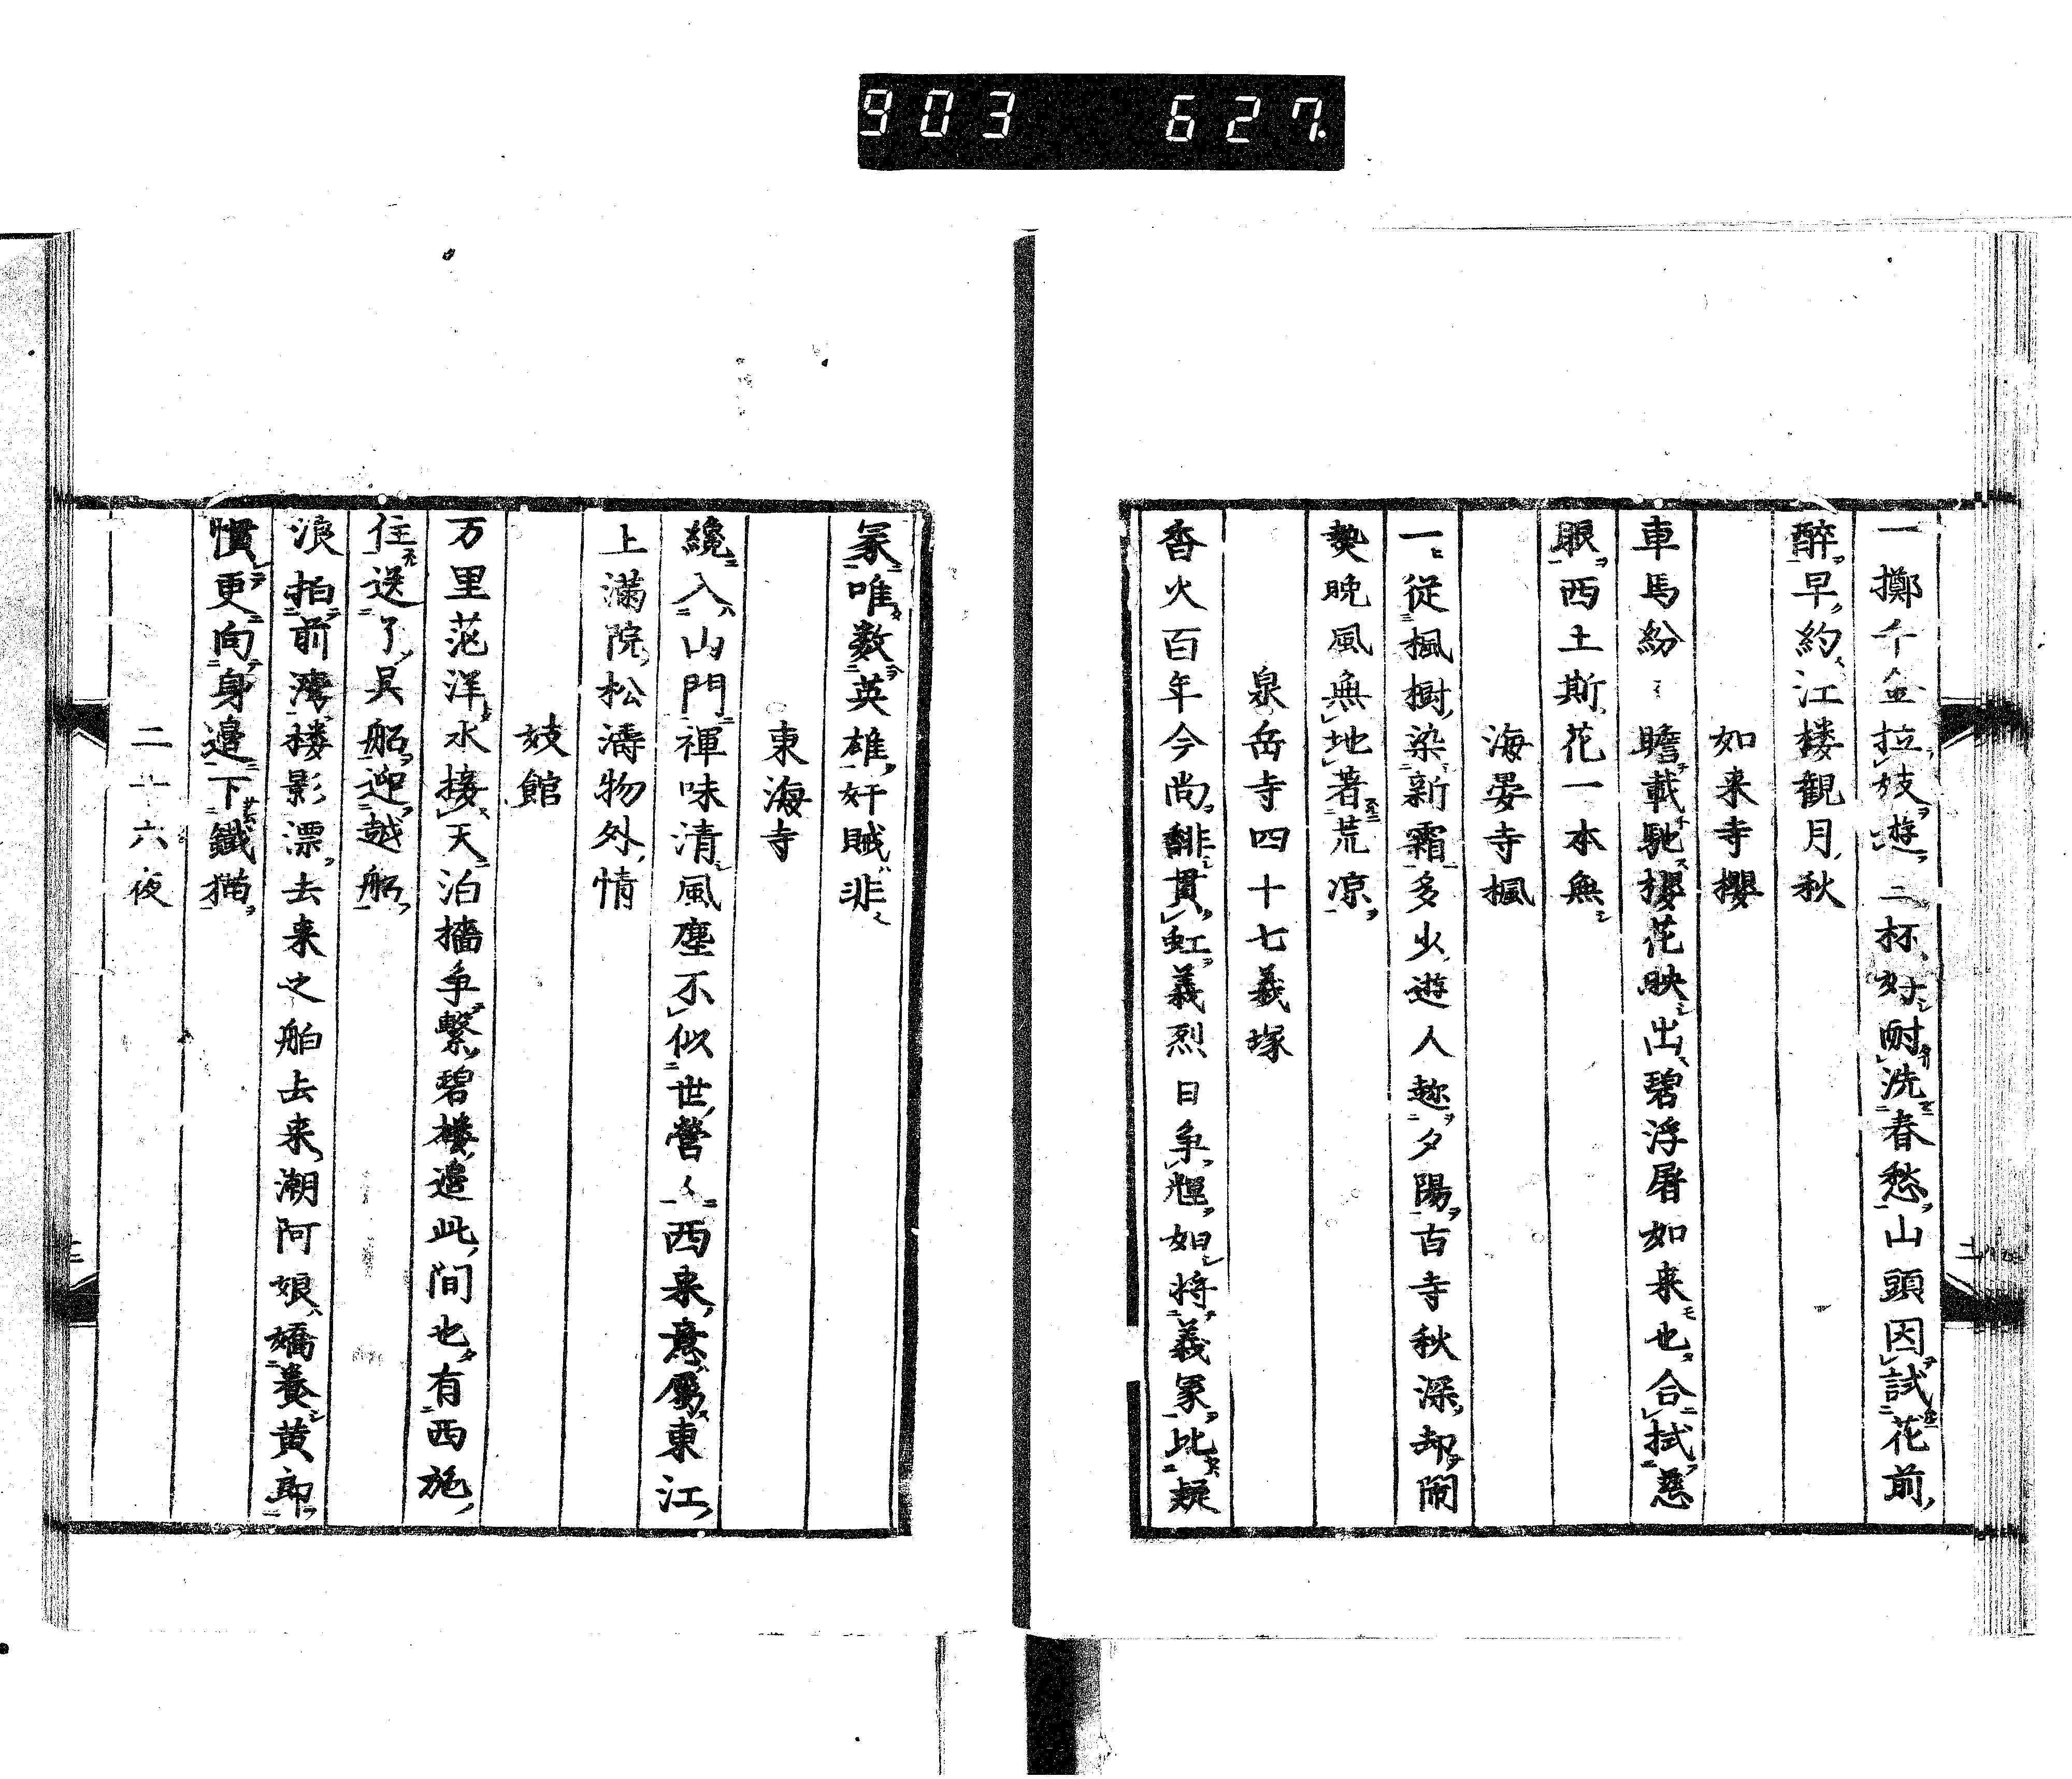 903 627
一擲千金拉妓遊二杯好耐洗春愁山頭因試花前
醉早約江楼観月秋
如来寺櫻
車馬紛〻瞻載馳櫻花映出碧浮屠如来也合拭慈
眼西土斯花一本無
海晏寺楓
一従楓樹染新霜多少遊人趂夕陽古寺秋深却閙
熱晩風無地著荒凉
泉岳寺四十七義塚
香火百年今尚緋貫虹義烈日争輝如将義冢比疑
冢唯数英雄奸賊非
東海寺
纔入山門禅味清風塵不似世営〻西来意属東江
上満院松濤物外情
妓館
万里茫洋水接天泊檣争繋碧楼邉此間也有西施
住送了呉船迎越船
浪拍前湾楼影漂去来之舶去来潮阿娘嬌養黄郎
慣更向身邉下鐵猫
二十六夜